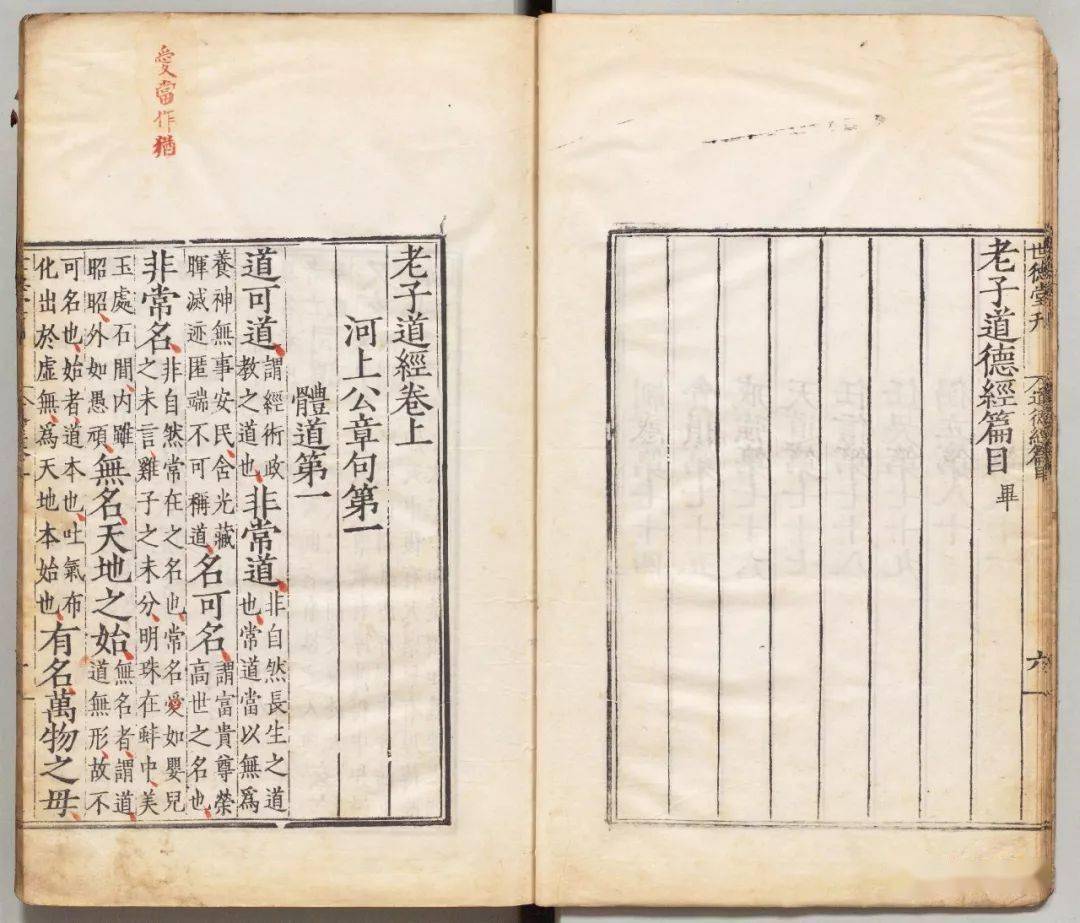 世德堂刊
道德經篇目
六
老子道德經篇目 畢
愛當作猶
老子道經卷上
河上公章句第一
體道第一
道可道謂經術政教之道也非常道非自然長生之道也常道當以無爲
養神無事安民含光藏暉滅迹匿端不可稱道名可名謂富貴尊榮高世之名也
非常名非自然常在之名也常名愛如嬰兒之未言雞子之未分明珠在蚌中美
玉處石間内雖昭昭外如愚頑無名天地之始無名者謂道道無形故不
可名也始者道本也吐氣布化出於虛無爲天地本始也有名萬物之母